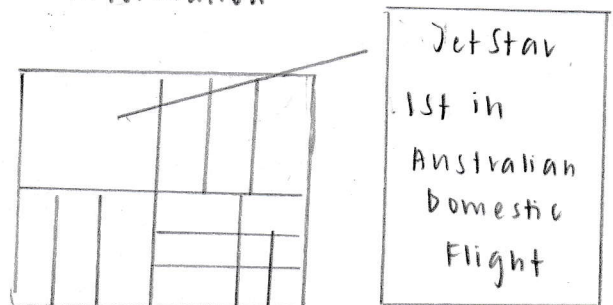 JetStar
1st in
Australian
Domestic
Flight